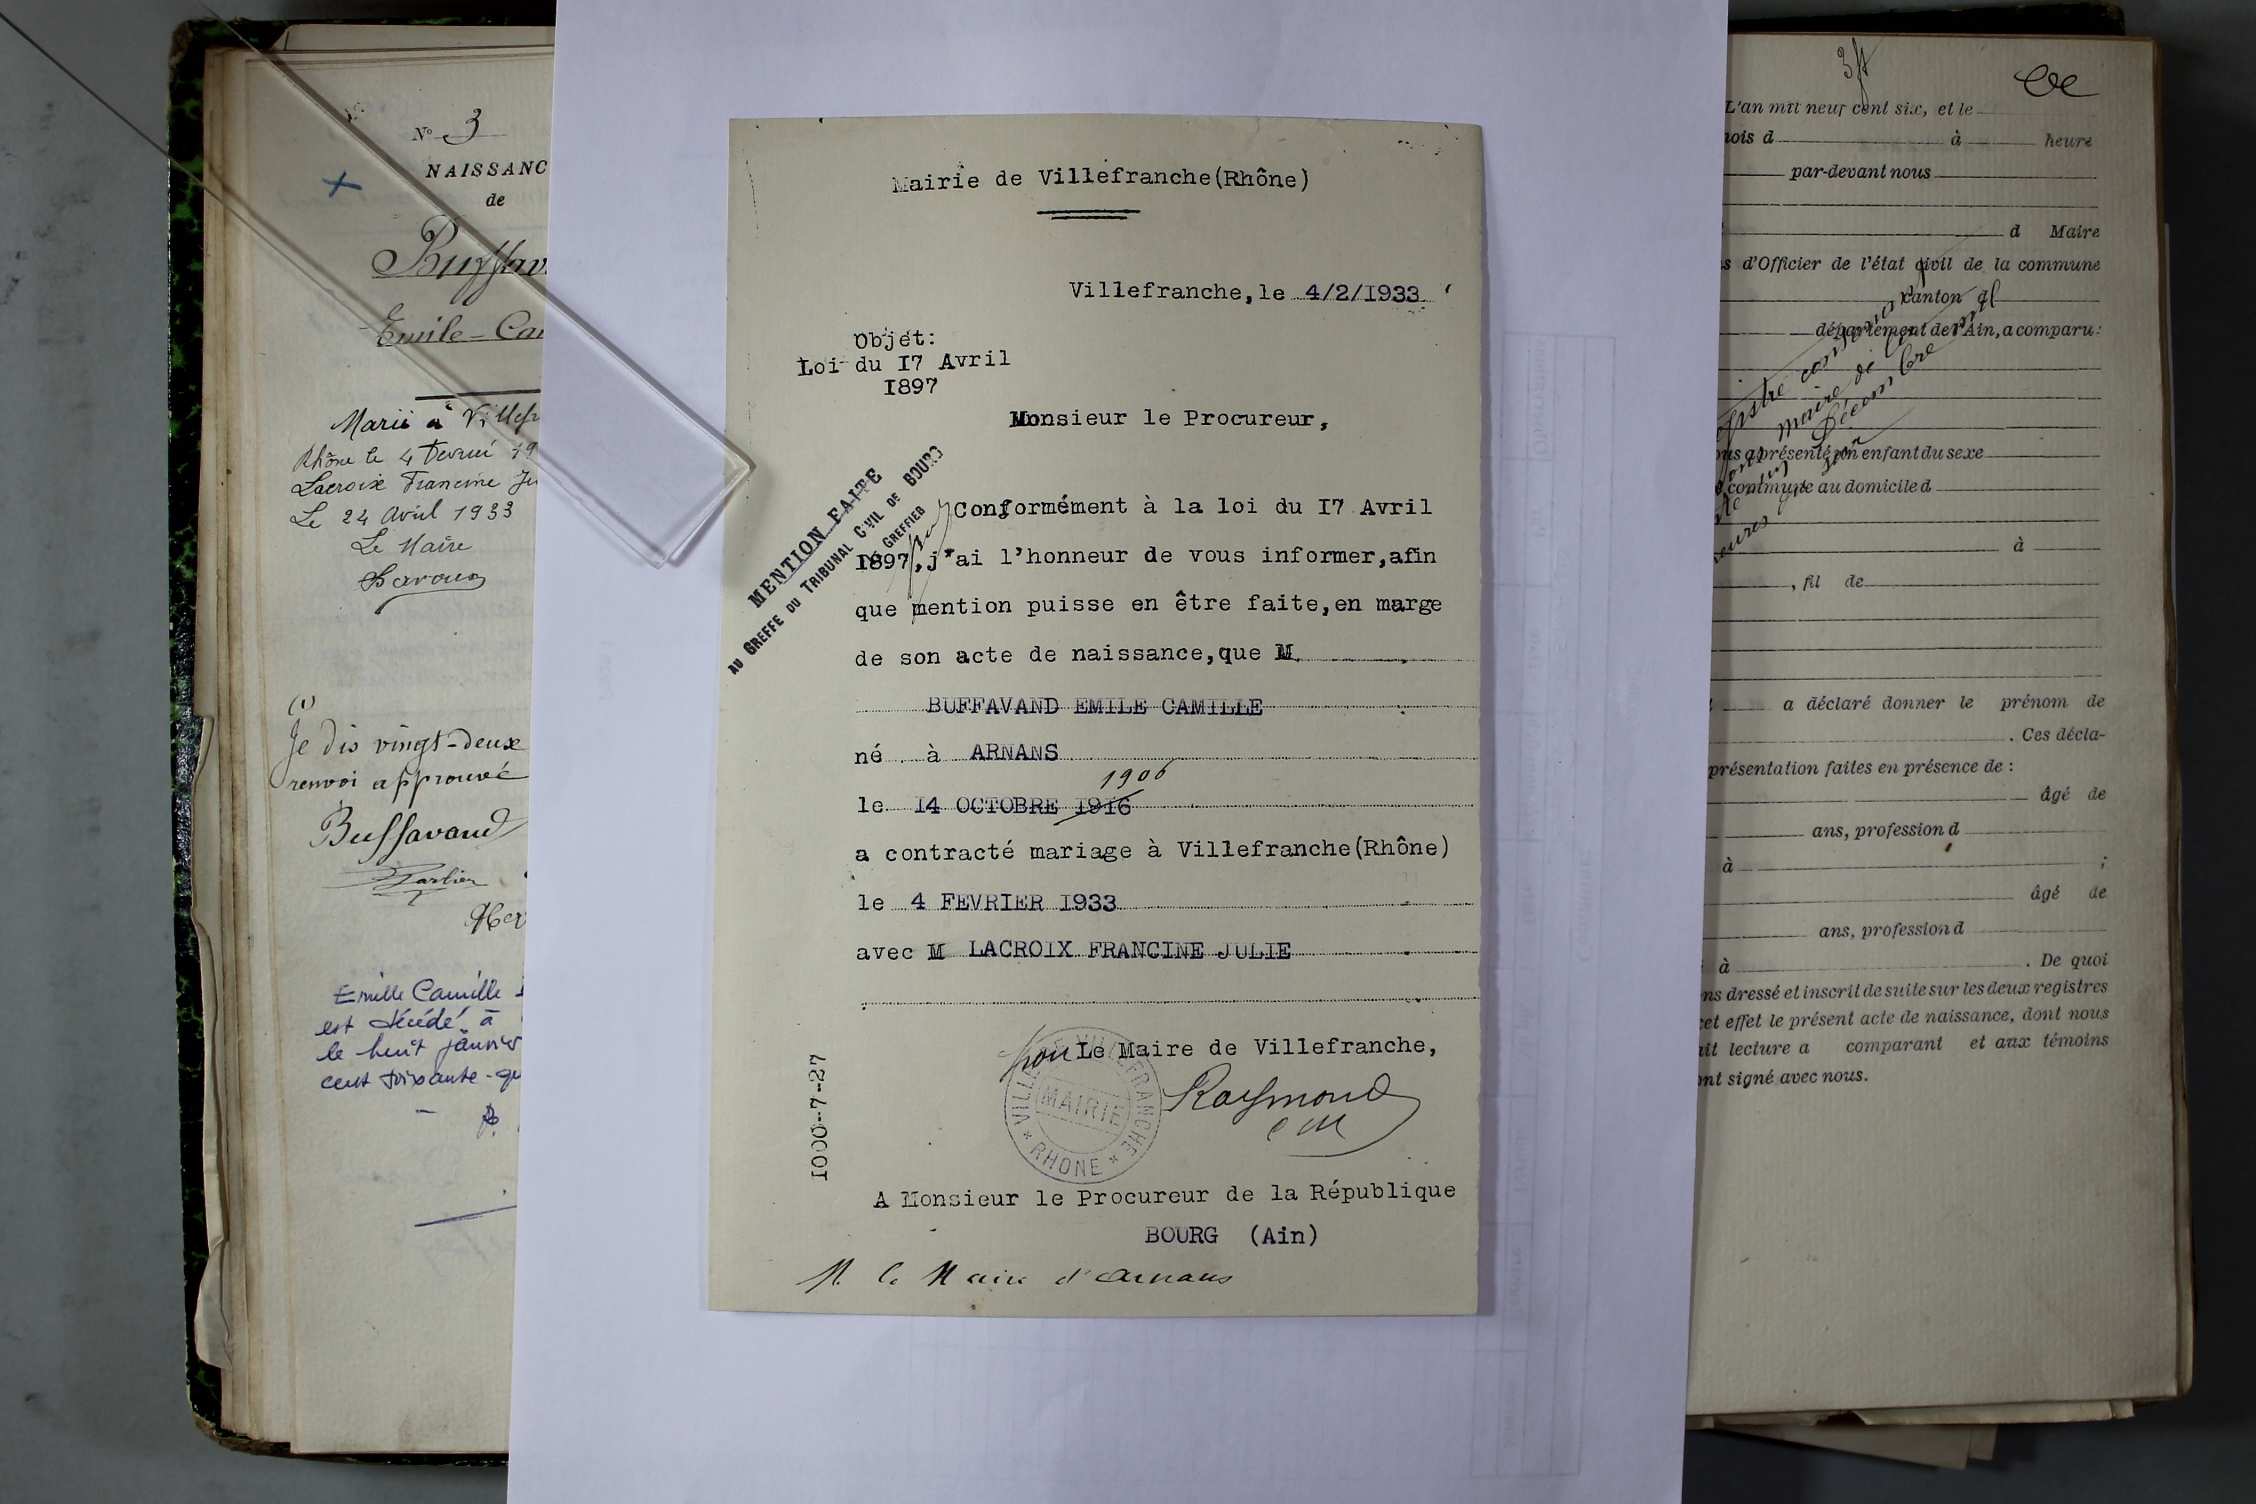 N° 3
NAISSANC
de
Buffav
Emile-Cam
Marié à Villefr
Rhône le 4 Février 19
Lacroix Francine Ju
Le 24 Avril 1933
Le Maire
(1)
Je dis vingt-deux
renvoi approuvé
Buffavand
Emile Camille
est décédé à
le huit janvier
cent soixante-qu
Mairie de Villefranche(Rhône)
Villefranche,le 4/2/1933
Objet:
Loi du 17 Avril
1897
Monsieur le Procureur,
MENTION FAITE
AU GREFFE DU TRIBUNAL CIVIL DE BOURG
LE GREFFIER
Conformément à la loi du 17 Avril
1897,j'ai l'honneur de vous informer,afin
que mention puisse en être faite,en marge
de son acte de naissance,que M
BUFFAVAND EMILE CAMILLE
né à ARNANS
1906
le 14 OCTOBRE 1916
a contracté mariage à Villefranche(Rhône)
le 4 FEVRIER 1933
avec M LACROIX FRANCINE JULIE
pour Le Maire de Villefranche,
VILLE DE VILLEFRANCHE
MAIRIE
* RHONE *
Raymond
CM
1000-7-27
A Monsieur le Procureur de la République
BOURG (Ain)
M. le Maire d'Arnans
L'an mil neuf cent six, et le
nois d à heure
par-devant nous
d Maire
s d'Officier de l'état civil de la commune
canton d
département de l'Ain, a comparu:
ous a présenté un enfant du sexe
commune au domicile d
à
, fil de
a déclaré donner le prénom de
. Ces décla-
présentation faites en présence de :
âgé de
ans, profession d
à ;
âgé de
ans, profession d
à . De quoi
ns dressé et inscrit de suite sur les deux registres
cet effet le présent acte de naissance, dont nous
ait lecture a comparant et aux témoins
ont signé avec nous.